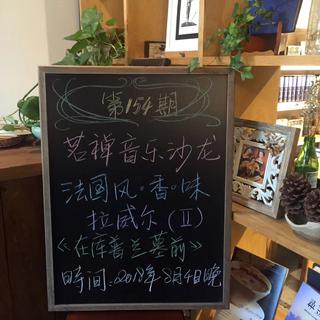 第154期
茗禅音乐沙龙
法国风·香·味
拉威尔(Ⅱ)
《在库普兰墓前》
时间:2018年8月4日晚